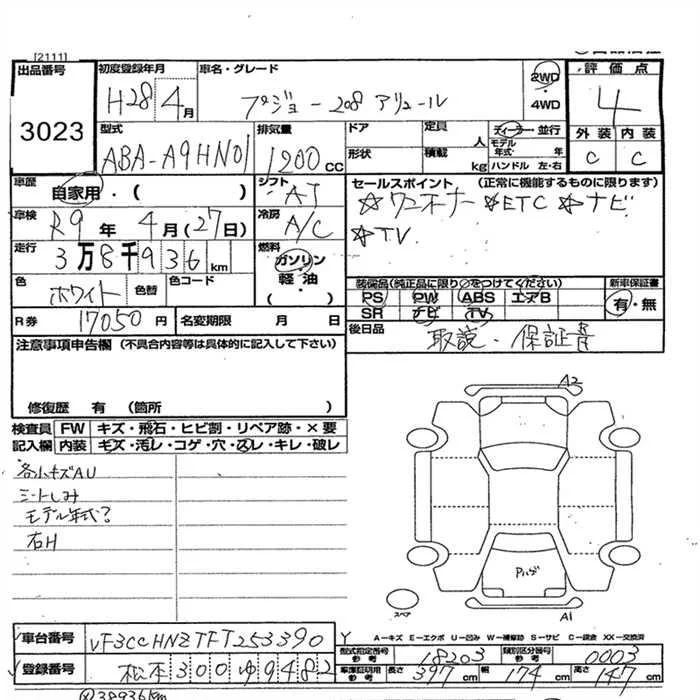 [2111]
出品番号 3023
初度登録年月 H28年4月
車名・グレード プジョー208 アリュール
2WD・4WD
評価点 4
外装 C 内装 C
型式 ABA-A9HN01
排気量 1200cc
ドア 定員 人
形状 積載 kg
ディーラー・並行
モデル年式・年
ハンドル 左・右
車歴 自家用・( )
シフト AT
セールスポイント (正常に機能するものに限ります)
☆ワンオーナー ☆ETC ☆ナビ
☆TV
車検 R9年4月(27日)
冷房 A/C
走行 3万8千936km
燃料 ガソリン・軽油・( )
色 ホワイト 色替 色コード
装備品(純正品に限り○をつけてください)
PS PW ABS エアB
SR ナビ TV
新車保証書 有・無
R券 17050円
名変期限 月 日
後日品 取説・保証書
注意事項申告欄 (不具合内容等は具体的に記入して下さい)
修復歴 有 (箇所 )
検査員 FW キズ・飛石・ヒビ割・リペア跡・×要
記入欄 内装 キズ・汚レ・コゲ・穴・スレ・キレ・破レ
各小キズAU
シートしみ
モデル年式?
右H
A2
Pハゲ
スペア
A1
車台番号 VF3CCHNZTFT253390
登録番号 松本300ゆ9482
A-キズ E-エクボ U-凹み W-補修跡 S-サビ C-腐食 XX-交換済
型式指定番号 参考 18203
類別区分番号 参考 0003
車庫証明用 参考 長さ397cm 幅174cm 高さ147cm
38936km